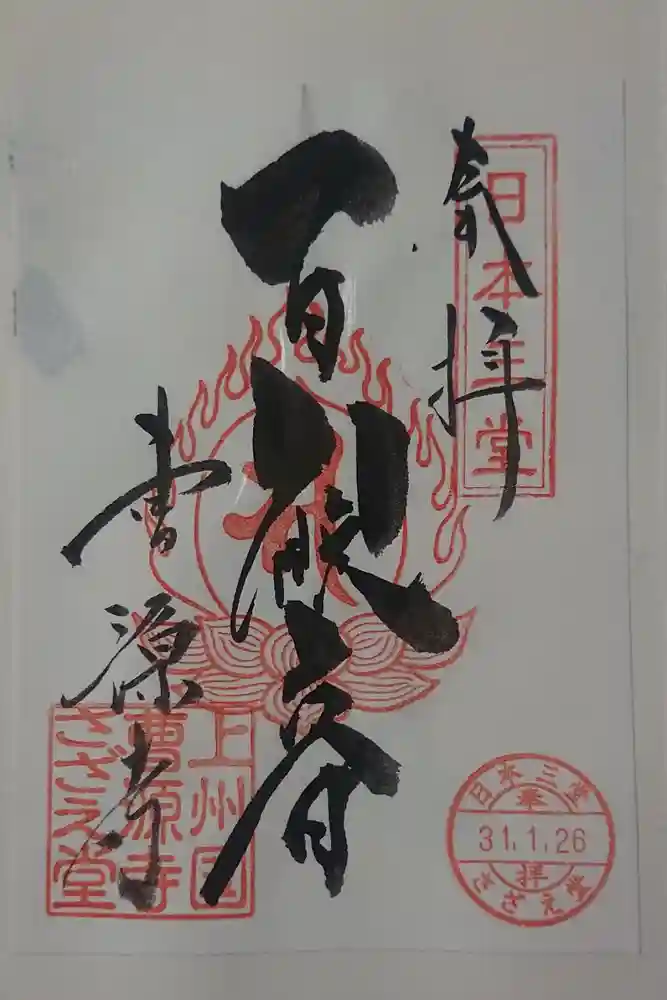 奉拝
日本三堂
百観音
曹源寺
上州国
曹源寺
さざえ堂
日本三堂
奉
31.1.26
拝
さざえ堂